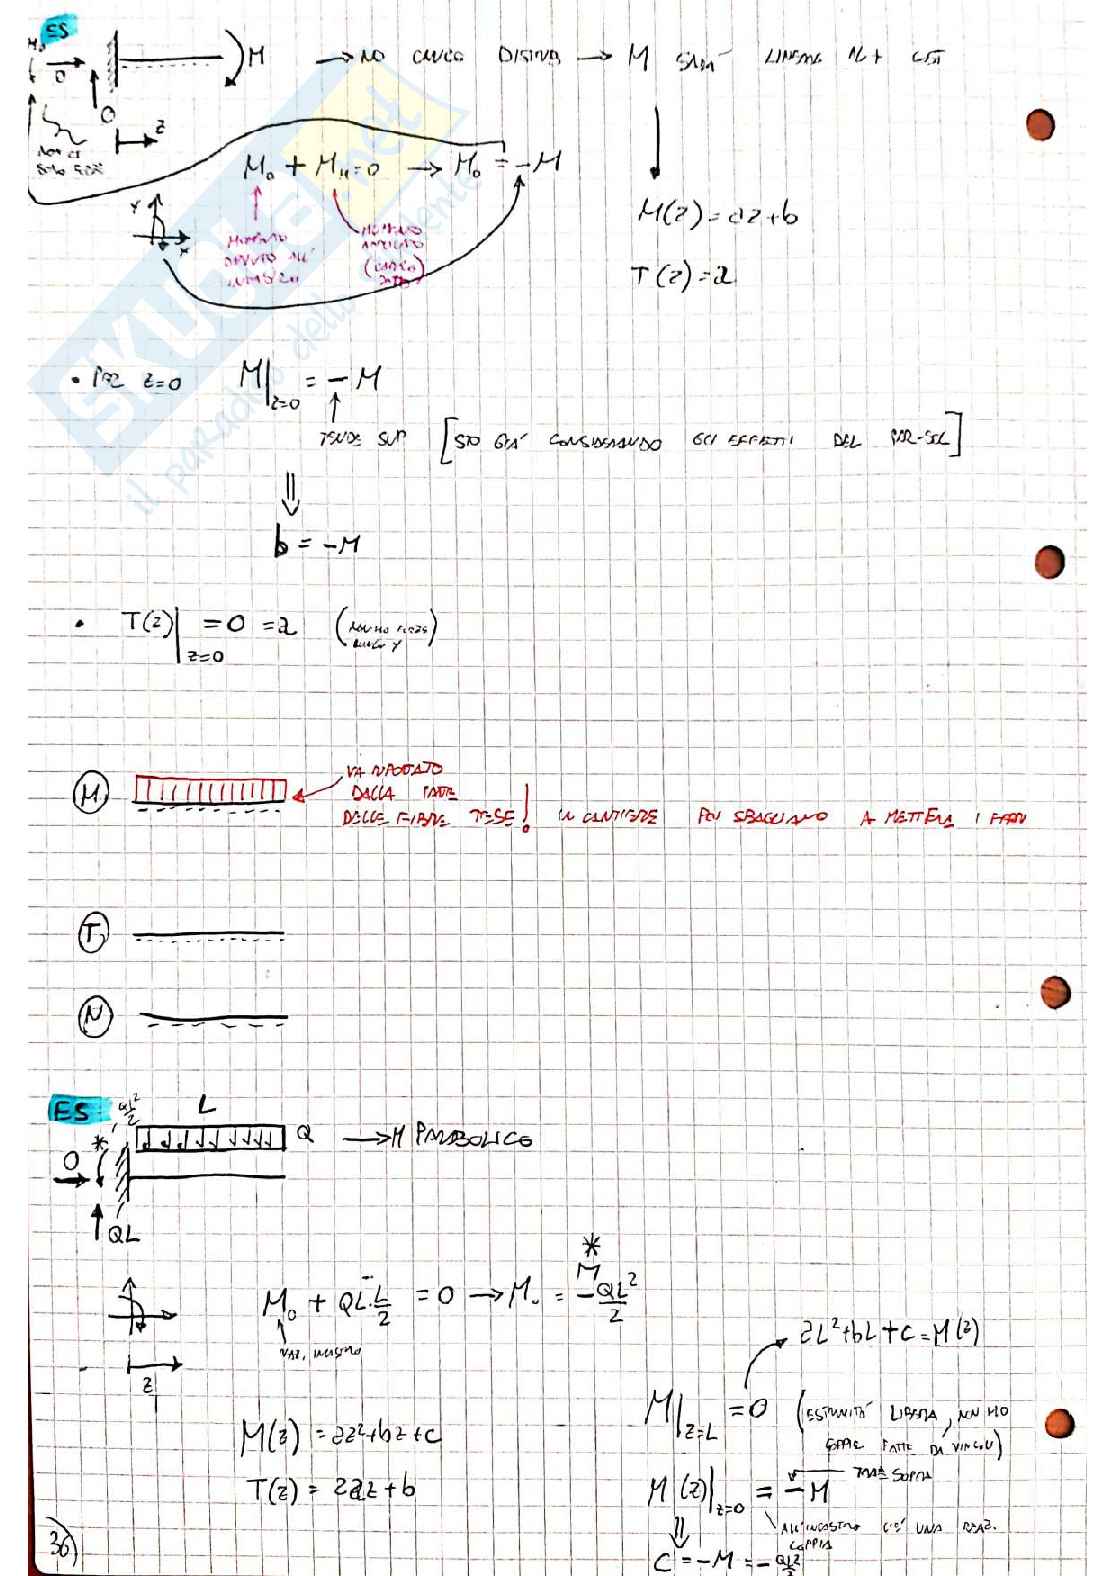 ES
M₀ O M → NO CARICO DISTRIB → M SARÀ LINEARE IN + COST
O
z
NON CI SONO
M₀ + M_M = 0 → M₀ = -M
Y X
MOMENTO DOVUTO ALL' INCASTRO
MOMENTO APPLICATO
M(z) = az+b
T(z) = a
• PER z=0 M|z=0 = -M
TENDE SUP [STO GIÀ CONSIDERANDO GLI EFFETTI DEL]
⇓
b = -M
• T(z)|z=0 = 0 = a (NON HO FORZE LUNGO Y)
M
VA RIPORTATO
DALLA PARTE
DELLE FIBRE TESE! IN CANTIERE POI SBAGLIANO A METTERE I FERRI
T
N
ES QL²/2 L
* Q → M PARABOLICO
O
QL
*
M₀ + QL·L/2 = 0 → M₀ = -QL²/2
REAZ. INCASTRO
z
aL²+bL+c = M(z)
M|z=L = 0 (ESTREMITÀ LIBERA, NON HO COPPIE FATTE DA VINCOLI)
M(z) = az²+bz+c
T(z) = 2az+b
M(z)|z=0 = -M TENDE SOPRA
ALL'INCASTRO C'È UNA REAZ. COPPIA
⇓
c = -M = -QL²/2
36)
SKUOLA.net
il paradiso dello studente